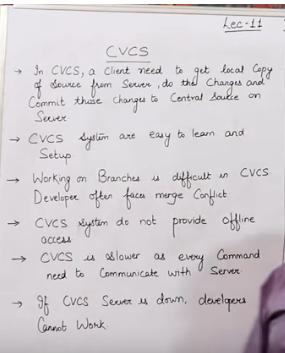 Lec-11
CVCS
→ In CVCS, a client need to get local Copy
of source from Server, do the Changes and
Commit those changes to Central Source on
Server
→ CVCS System are easy to learn and
Setup
→ Working on Branches is difficult in CVCS
Developer often faces merge Conflict
→ CVCS System do not provide offline
access
→ CVCS is slower as every Command
need to Communicate with Server
→ If CVCS Server is down, developers
Cannot Work.